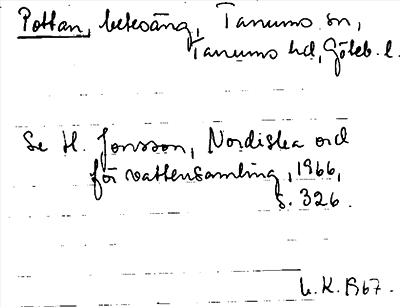 Pottan, betesäng, Tanums sn,
Tanums hd, Göteb. l.
Se H. Jonsson, Nordiska ord
för vattensamling, 1966,
s. 326.
U.K. 1967.